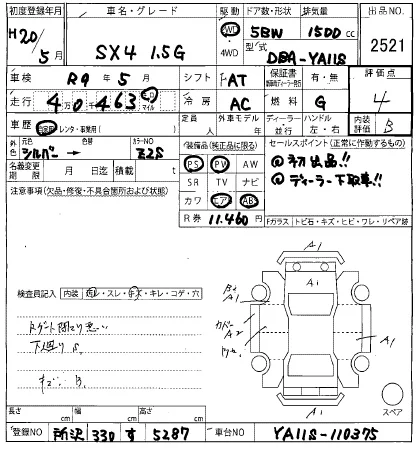 初度登録年月 車名・グレード 駆動 ドア数・形状 排気量 出品NO
H20/5月 SX4 1.5G 2WD 4WD 5BW 1500 cc 2521
型式 DBA-YA11S
車検 R9年5月 シフト FAT 保証書 有・無 評価点
走行 4万0千463 キロ マイル 冷房 AC 燃料 G 4
車歴 自家用 レンタ・事業用( ) 定員 人 外車モデル 年 ディーラー 並行 ハンドル 左・右 内装評価 B
外色 元色 シルバー → 色替 カラーNO Z2S
装備品(純正品に限る) セールスポイント(正常に作動するもの)
名義変更期限 月 日迄 積載 t
PS PW AW
SR TV ナビ
カワ エアB ABS
◎初出品!!
◎ディーラー下取車!!
注意事項(欠品・修復・不具合箇所および状態)
R券 11,460円
Fガラス トビ石・キズ・ヒビ・ワレ・リペア跡
検査員記入 内装 汚レ・スレ・キズ・キレ・コゲ・穴
下回りS
キズ B
A1
A1
A1
カバー A2
A1
A1
スペア
長さ cm 幅 cm 高さ cm
登録NO 所沢 330 す 5287 車台NO YA11S-110375